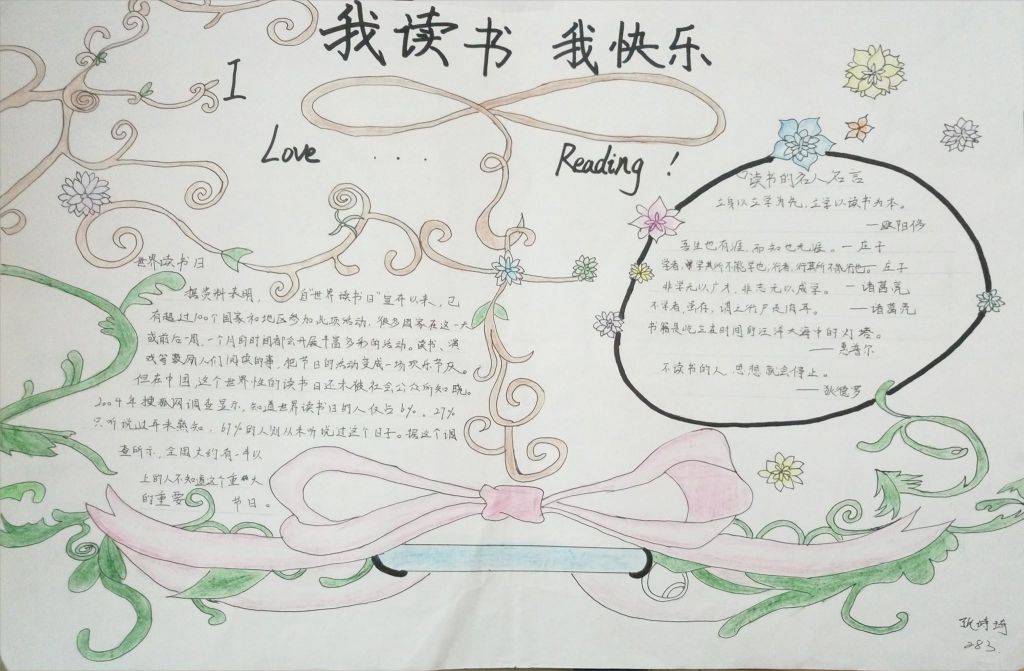 我读书 我快乐
I
Love ....
Reading !
世界读书日
据资料表明， 自“世界读书日”宣布以来，已
有超过100个国家和地区参加此项活动，很多国家在这一天
或前后一周、一个月的时间都会开展丰富多彩的活动。读书、演
戏等鼓励人们阅读的事，把节日的活动变成一场欢乐节庆。
但在中国，这个世界性的读书日还未被社会公众所知晓。
2004年搜狐网调查显示，知道世界读书日的人仅占6%。27%
只听说过并未熟知，67%的人则从未听说过这个日子。据这个调
查所示，全国大约有一半以
上的人不知道这个重大
的重要 节日。
读书的名人名言
立身以立学为先，立学以读书为本。
—欧阳修
吾生也有涯，而知也无涯。—庄子
学者，学其所不能学也，行者，行其所不能行也。—庄子
非学无以广才，非志无以成学。—诸葛亮
不学者，虽存，谓之行尸走肉耳。—诸葛亮
书籍是屹立在时间的汪洋大海中的灯塔。
——惠普尔
不读书的人 思想就会停止。
——狄德罗
283